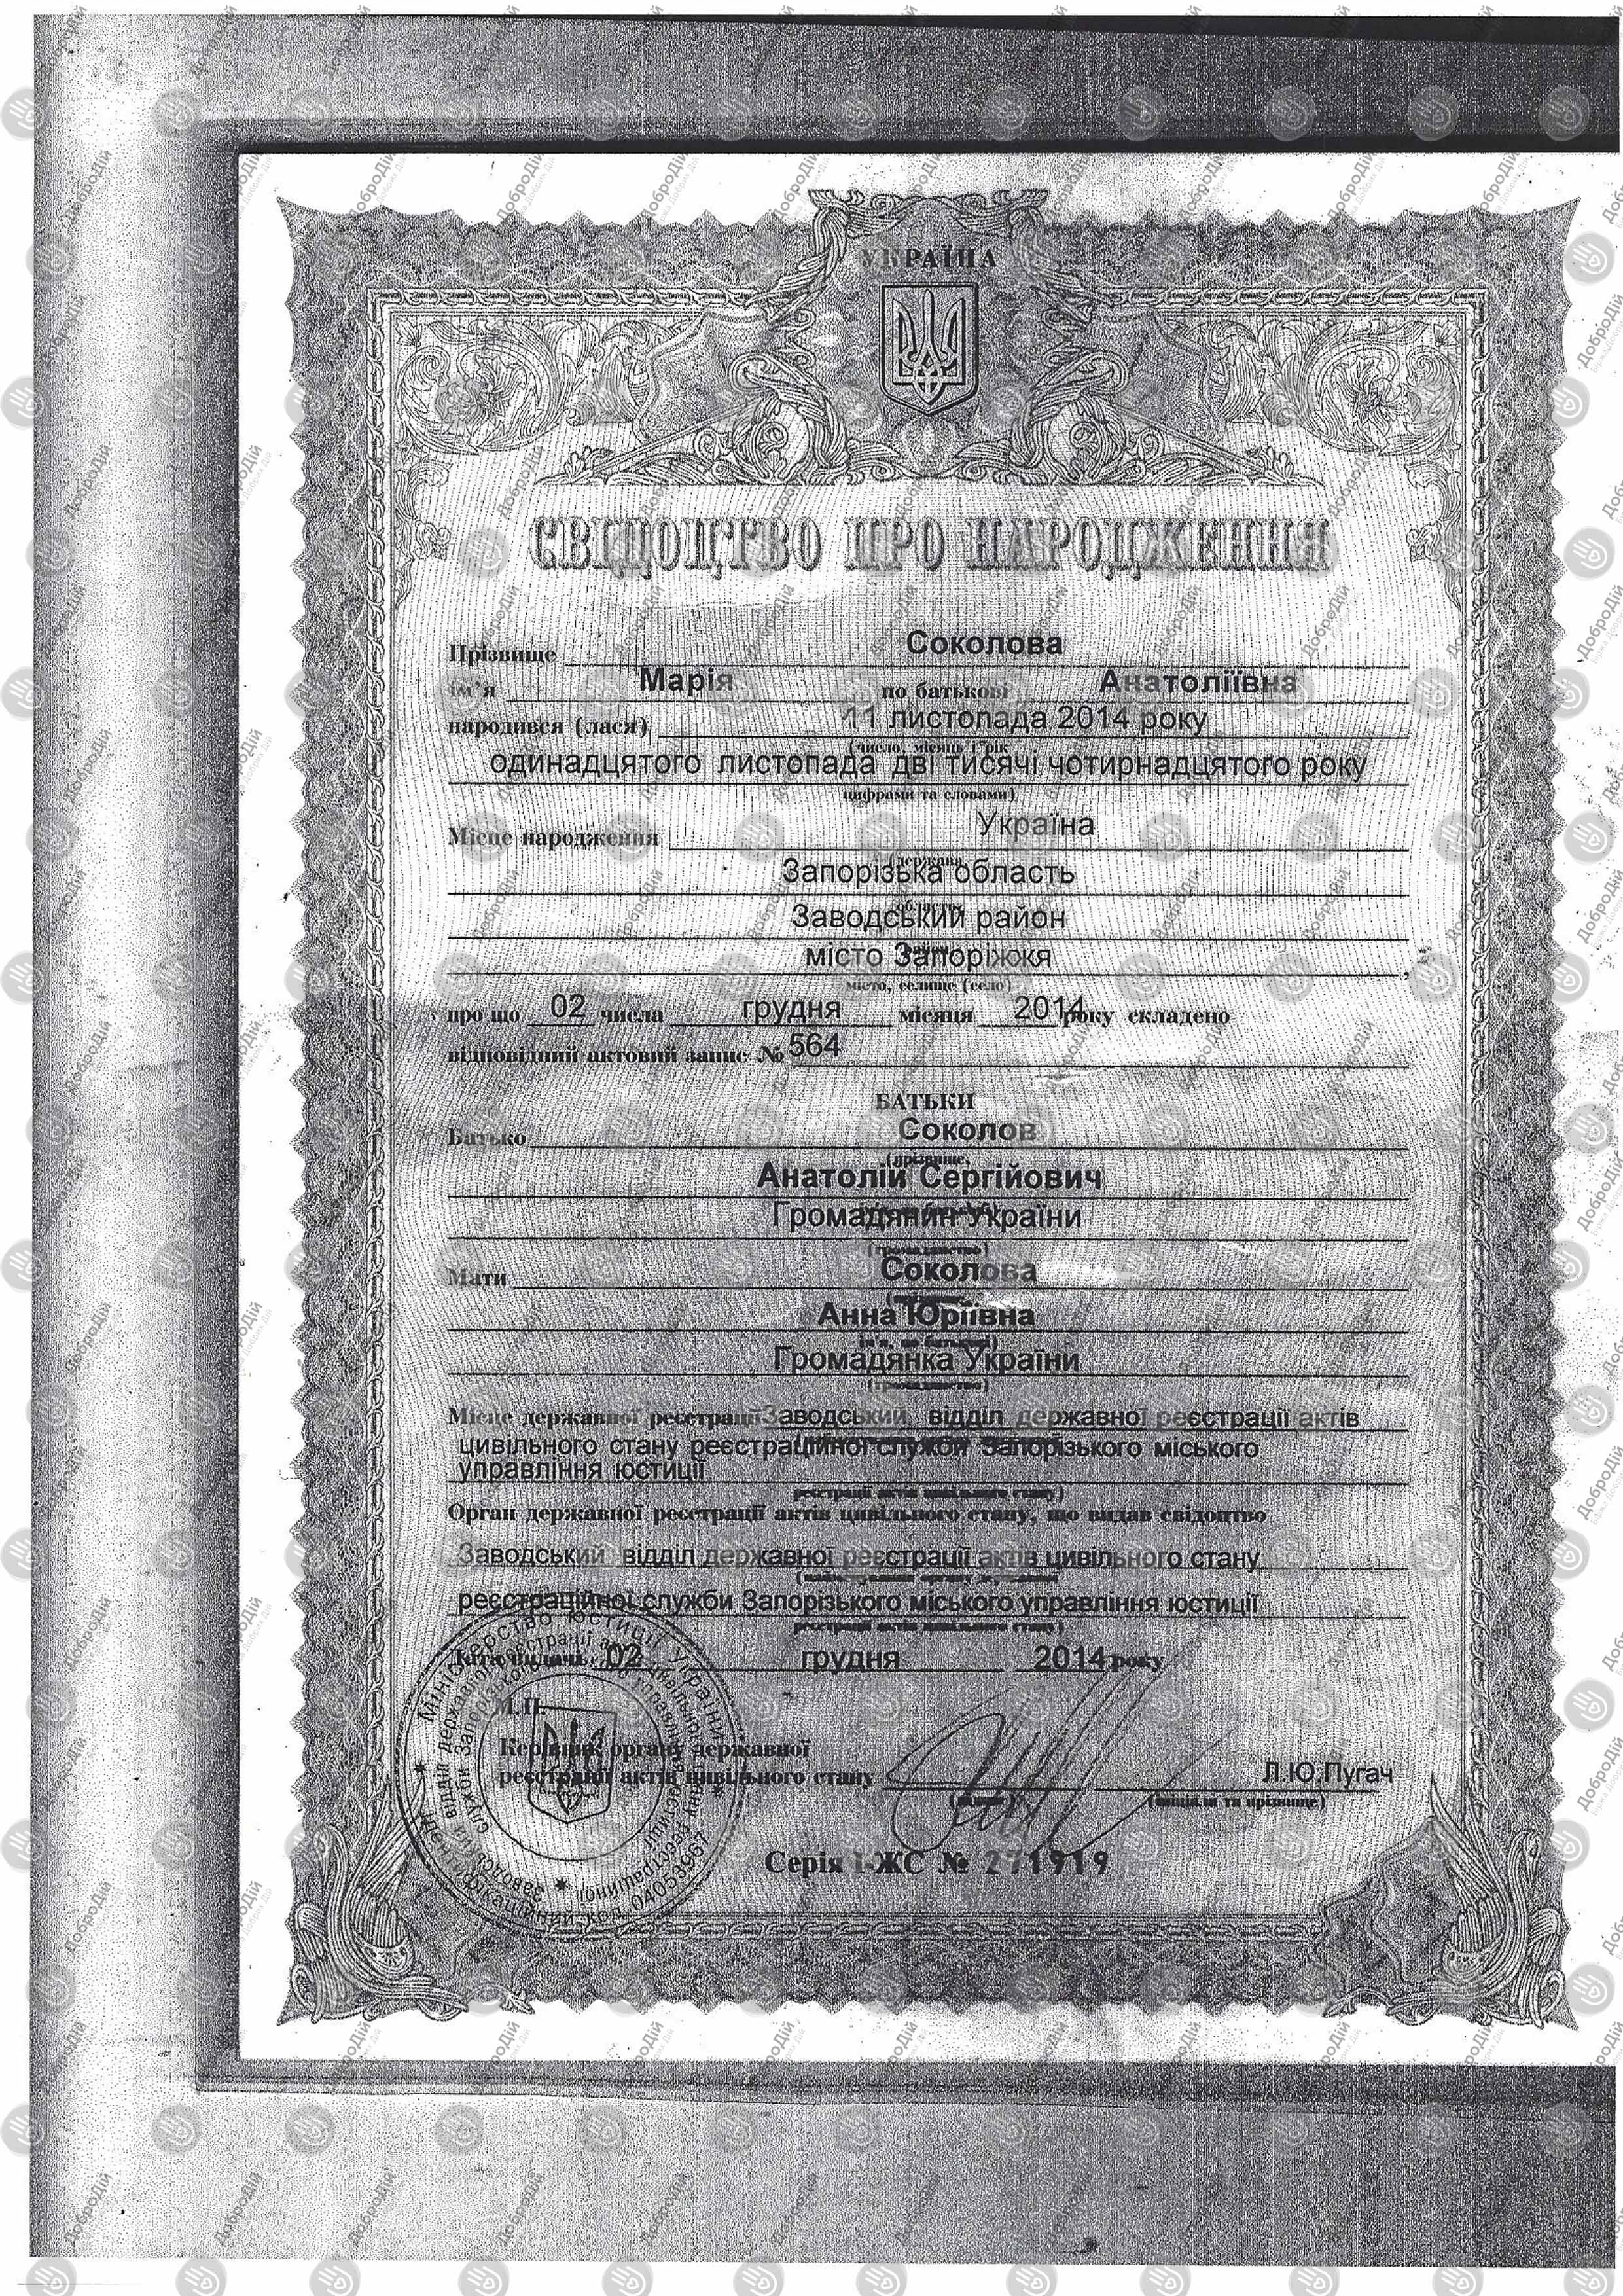 УКРАЇНА
СВІДОЦТВО ПРО НАРОДЖЕННЯ
Прізвище Соколова
ім'я Марія по батькові Анатоліївна
народився (лася) 11 листопада 2014 року
(число, місяць і рік
одинадцятого листопада дві тисячі чотирнадцятого року
цифрами та словами)
Місце народження Україна
(держава,
Запорізька область
область,
Заводський район
місто Запоріжжя
місто, селище (село)
про що 02 числа грудня місяця 2014 року складено
відповідний актовий запис № 564
БАТЬКИ
Батько Соколов
(прізвище,
Анатолій Сергійович
Громадянин України
(громадянство)
Мати Соколова
Анна Юріївна
ім'я, по батькові)
Громадянка України
(громадянство)
Місце державної реєстрації Заводський відділ державної реєстрації актів
цивільного стану реєстраційної служби Запорізького міського
управління юстиції
реєстрації актів цивільного стану)
Орган державної реєстрації актів цивільного стану, що видав свідоцтво
Заводський відділ державної реєстрації актів цивільного стану
(найменування органу державної
реєстраційної служби Запорізького міського управління юстиції
реєстрації актів цивільного стану)
Дата видачі 02 грудня 2014 року
М.П.
Керівник органу державної
реєстрації актів цивільного стану Л.Ю.Пугач
(підпис) (ініціали та прізвище)
Серія І-ЖС № 271919
Міністерство юстиції України
Ідентифікаційний код 04053967
Заводський відділ державної реєстрації актів цивільного стану реєстраційної
служби Запорізького міського управління юстиції
ДоброДій